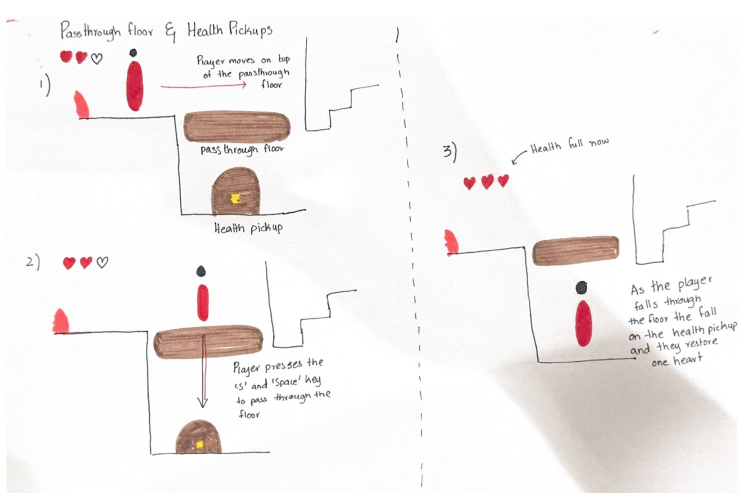 Passthrough floor & Health Pickups
1)
Player moves on top
of the passthrough
floor
passthrough floor
Health pickup
2)
Player presses the
'S' and 'Space' key
to pass through the
floor
3)
Health full now
As the player
falls through
the floor the fall
on the health pickup
and they restore
one heart